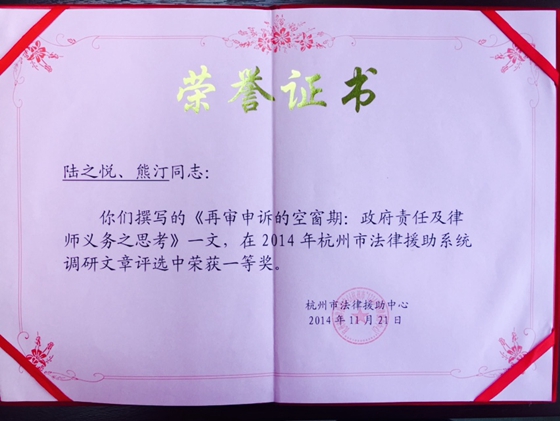 荣誉证书
陆之悦、熊汀同志：
你们撰写的《再审申诉的空窗期：政府责任及律
师义务之思考》一文，在2014年杭州市法律援助系统
调研文章评选中荣获一等奖。
杭州市法律援助中心
2014年11月21日